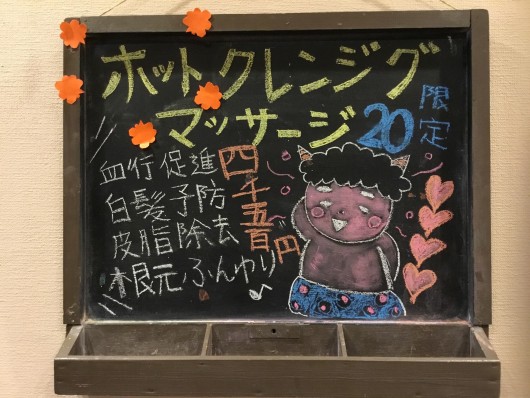 ホットクレンジング
マッサージ
限定20
血行促進
白髪予防
皮脂除去
根元ふんゆり♪
四千五百円